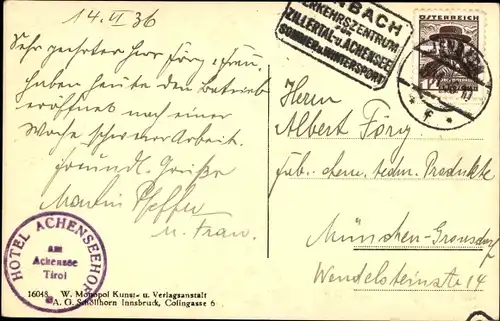 14. VI 36
Sehr geehrter Herr Förg u. Frau,
haben heute den Betrieb
eröffnet nach einer
Woche schwerer Arbeit.
Freundl. Grüße
Martin Pfeffer
u. Frau.
HOTEL ACHENSEEHOF
am
Achensee
Tirol
16048 W. Monopol Kunst- u. Verlagsanstalt
A. G. Schöllhorn Innsbruck, Colingasse 6
NBACH
ERKEHRSZENTRUM
FÜR
ZILLERTAL u. ACHENSEE
SOMMER u. WINTERSPORT
ÖSTERREICH
12
* f *
Herrn
Albert Förg
Fab. chem. techn. Produkte
München-Gronsdorf
Wendelsteinstr 14